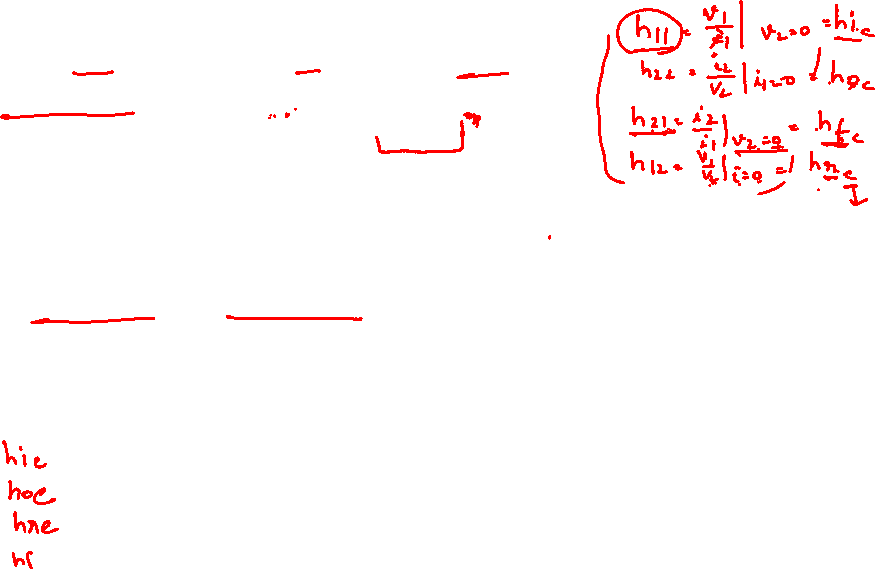 h11 = v1/i1 | v2=0 = hic
h22 = i2/v2 | i1=0 = hoc
h21 = i2/i1 | v2=0 = hfc
h12 = v1/v2 | i=0 = hrc
hie
hoe
hre
hf